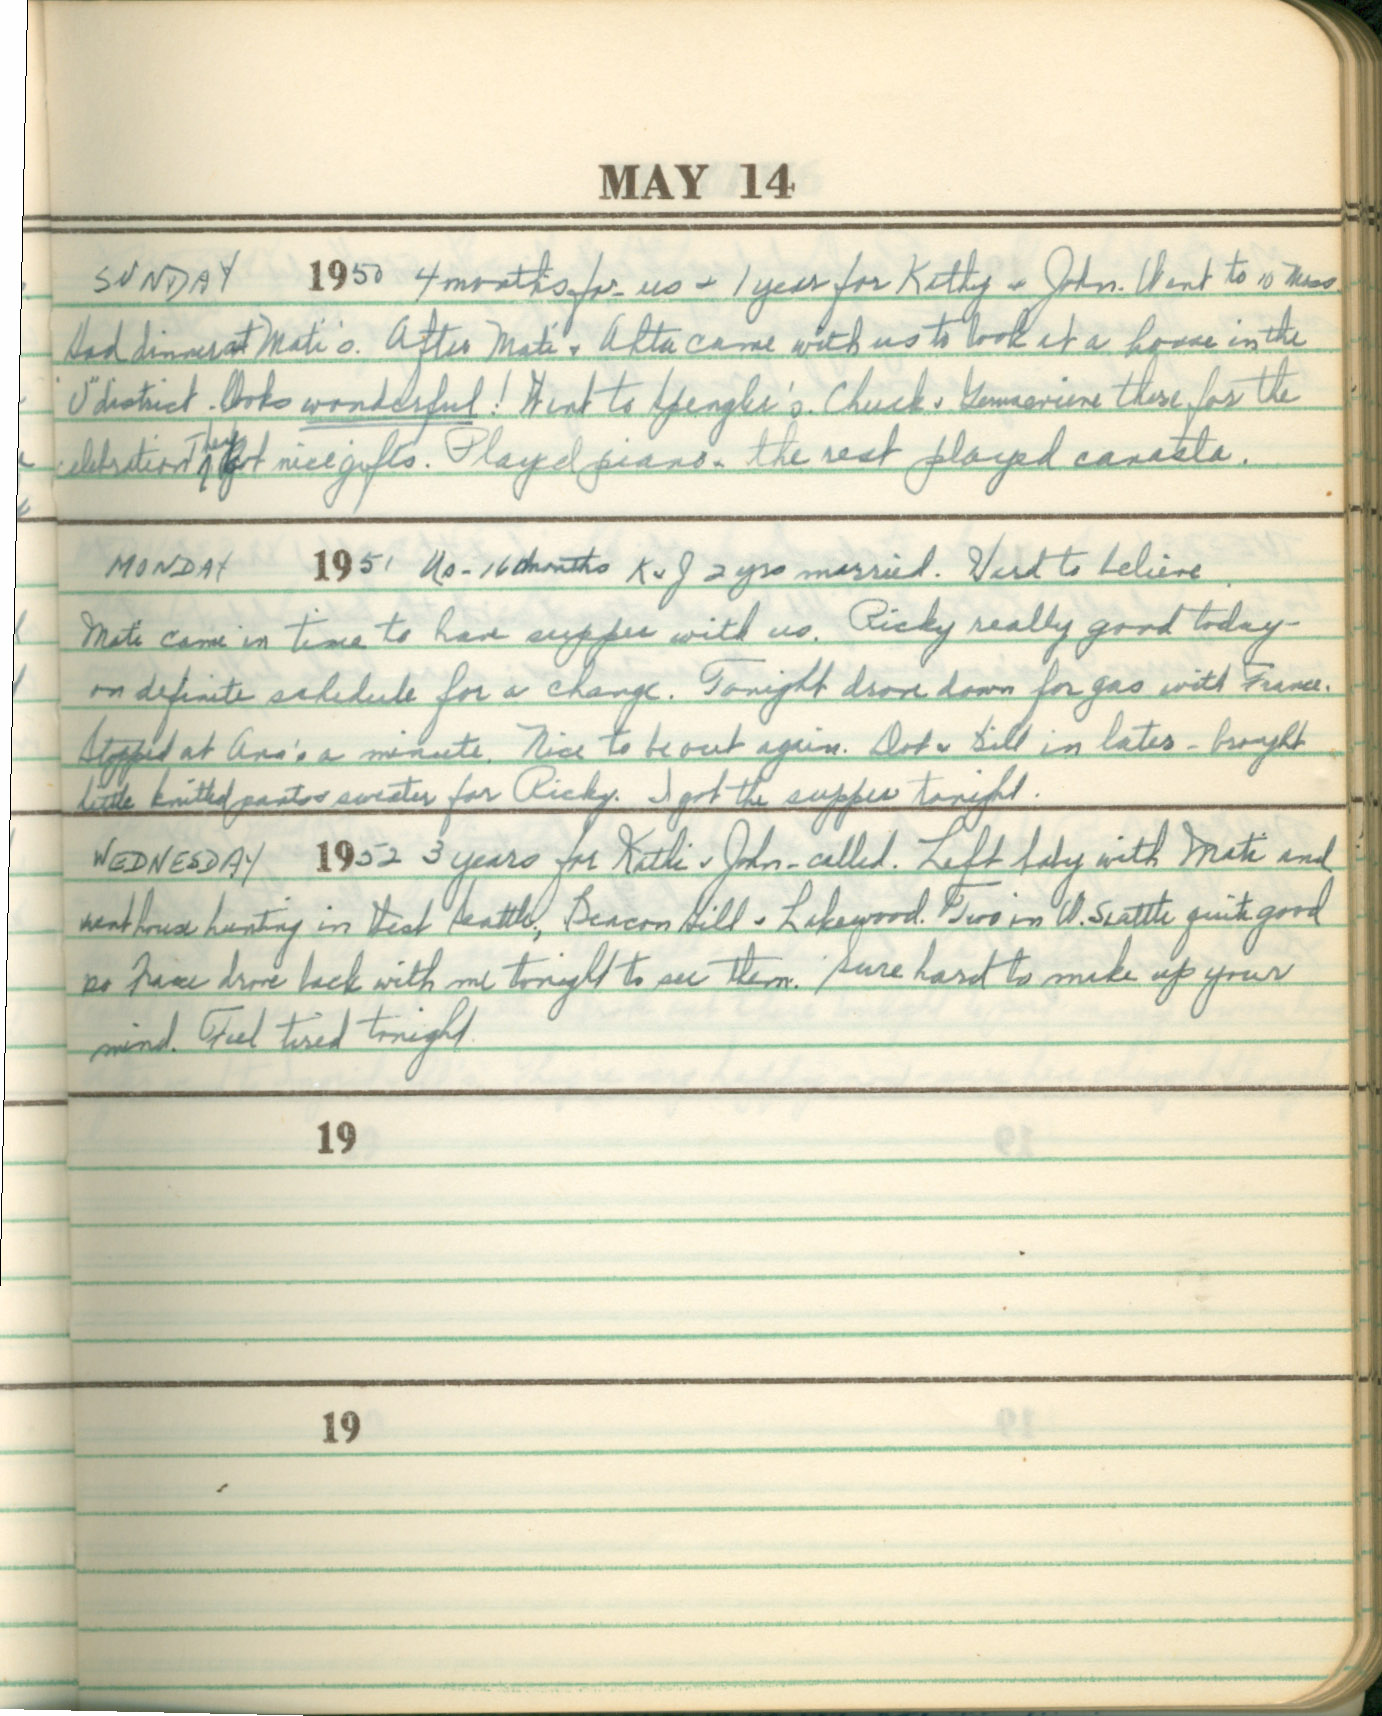 MAY 14
SUNDAY 1950 4 months for us + 1 year for Kathy + John. Went to 10 Mass.
Had dinner at Mati's. After Mati + Alta came with us to look at a house in the
"U" district. Looks wonderful! Went to Spengler's. Chuck + Genevieve there for the
celebration. They got nice gifts. Played piano + the rest played canasta.
MONDAY 1951 Us - 16 months K + J 2 yrs married. Hard to believe
Mati came in time to have supper with us. Ricky really good today -
on definite schedule for a change. Tonight drove down for gas with France.
Stopped at Ana's a minute. Nice to be out again. Dot + Bill in later - brought
little knitted pants + sweater for Ricky. I got the supper tonight.
WEDNESDAY 1952 3 years for Kathi + John - called. Left baby with Mati and
went house hunting in West Seattle, Beacon Hill + Lakewood. Two in W. Seattle quite good
so France drove back with me tonight to see them. Sure hard to make up your
mind. Feel tired tonight.
19
19